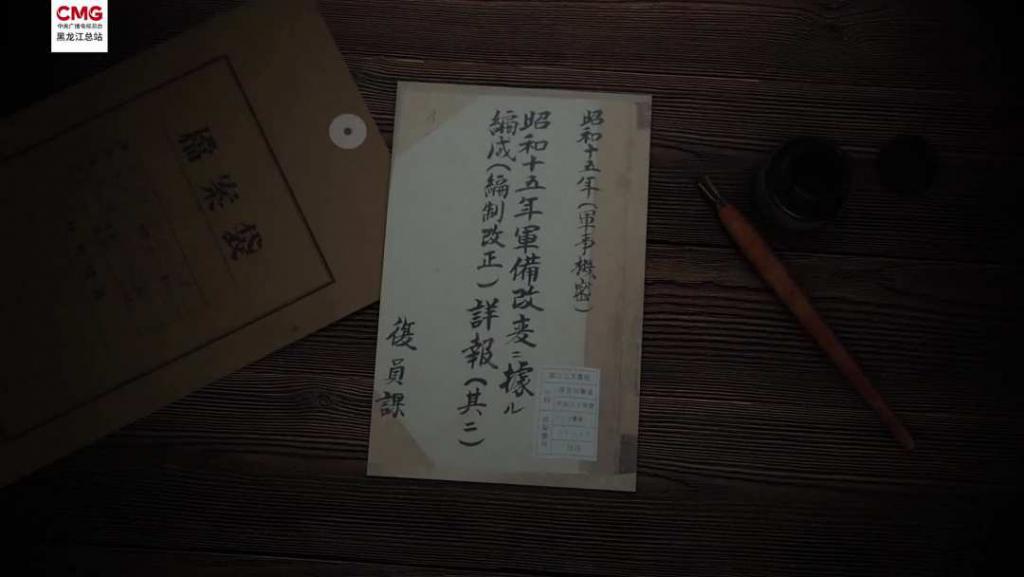 CMG
中央广播电视总台
黑龙江总站
檔案袋
昭和十五年(軍事機密)
昭和十五年軍備改変ニ據ル
編成(編制改正)詳報(其二)
復員課